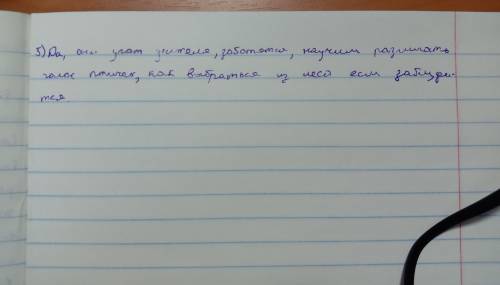 5) Да, они учат жителя, заботятся, научим различать
голос птичек, как выбраться из леса если заблуди-
тся.